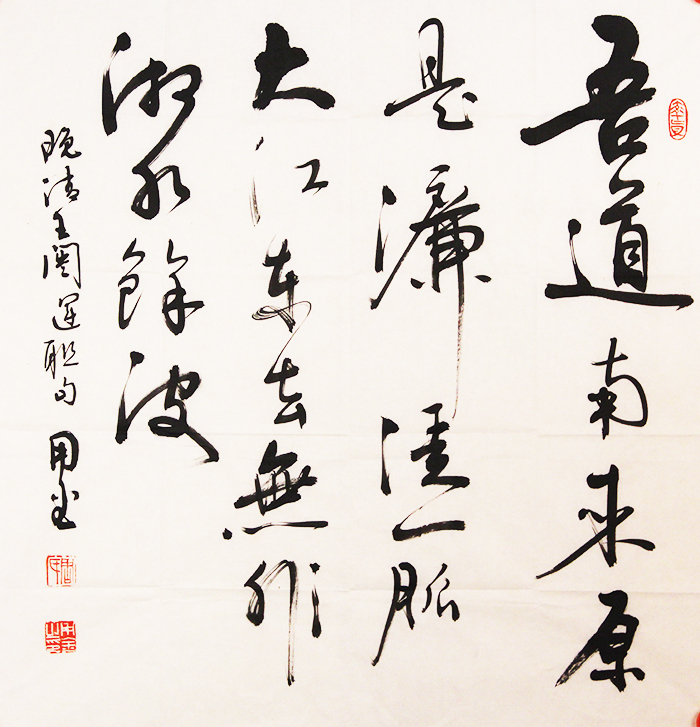 吾道南来原
是濂溪一脈
大江東去無非
湘水餘波
晚清王闓運聯句
用